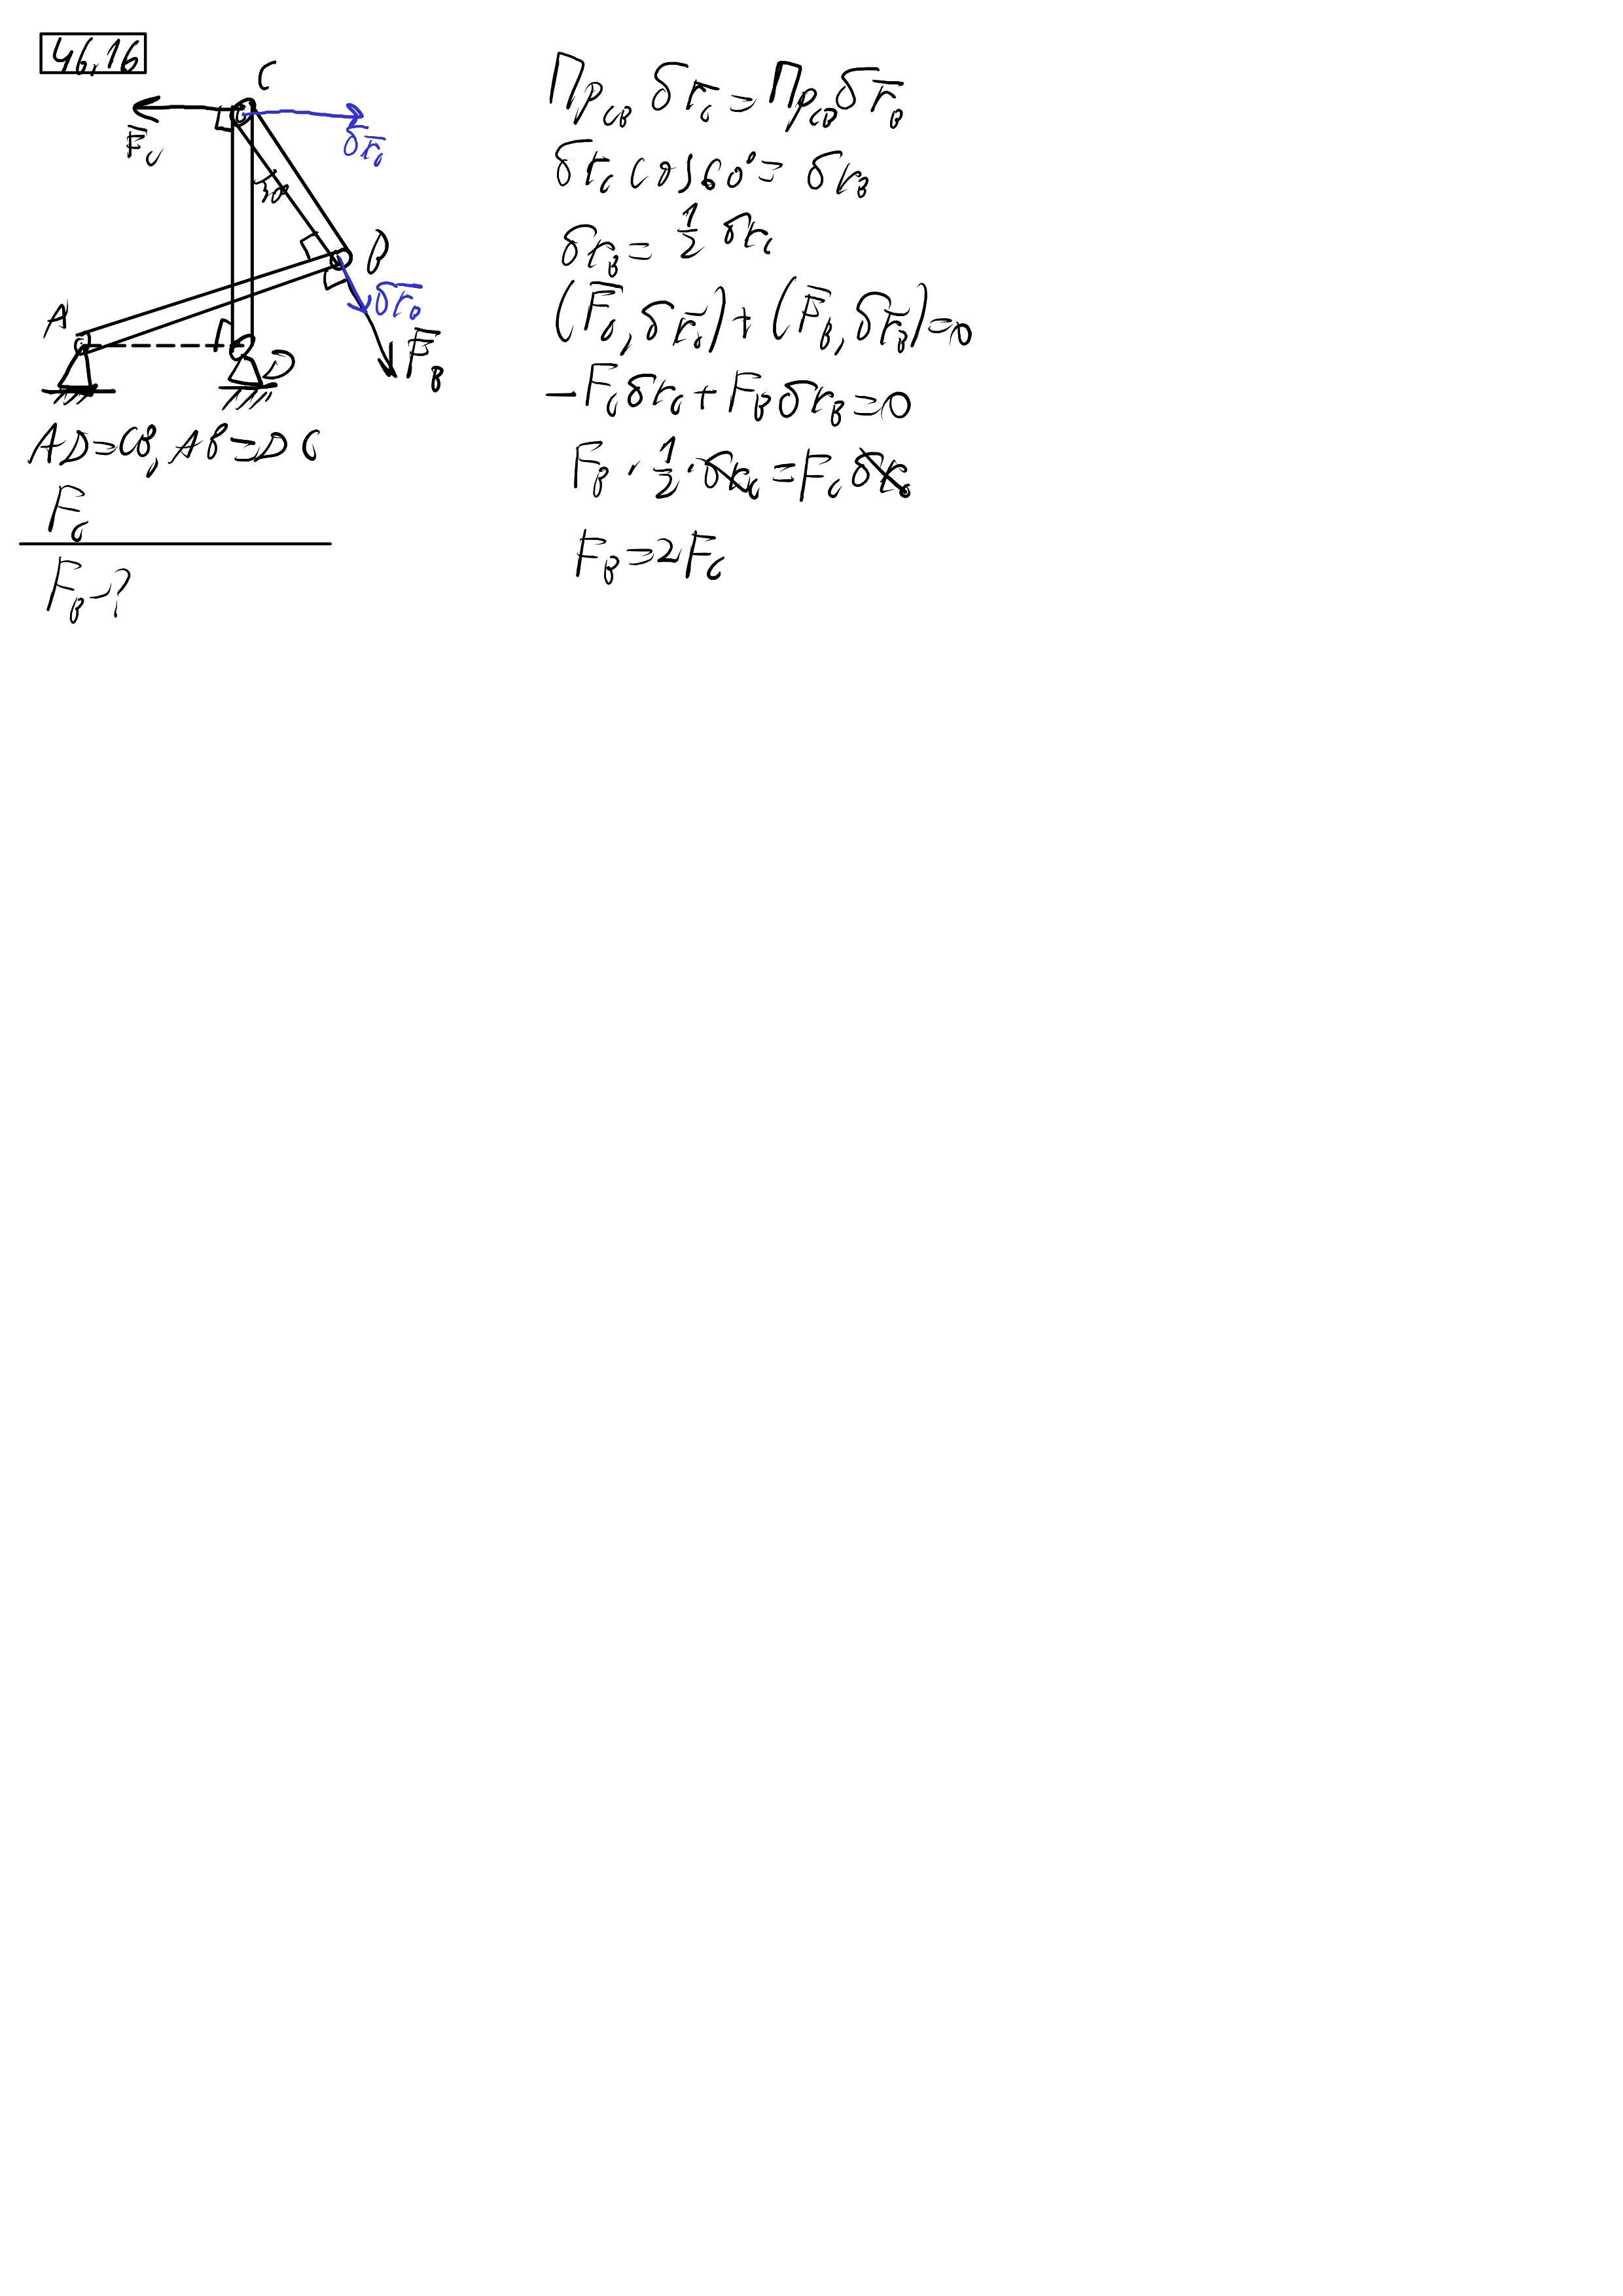 46.16
C
F̄c
δr̄c
30°
B
δr̄B
A
F̄B
D
AD=CB, AB=DC
Fc
FB-?
ПрCB δr̄c = ПрCB δr̄B
δrc cos60°= δrB
δrB = 1/2 δrc
(F̄c, δr̄c) + (F̄B, δr̄B) = 0
-Fc δrc + FB δrB = 0
FB · 1/2 · δrc = Fc δrc
FB = 2Fc